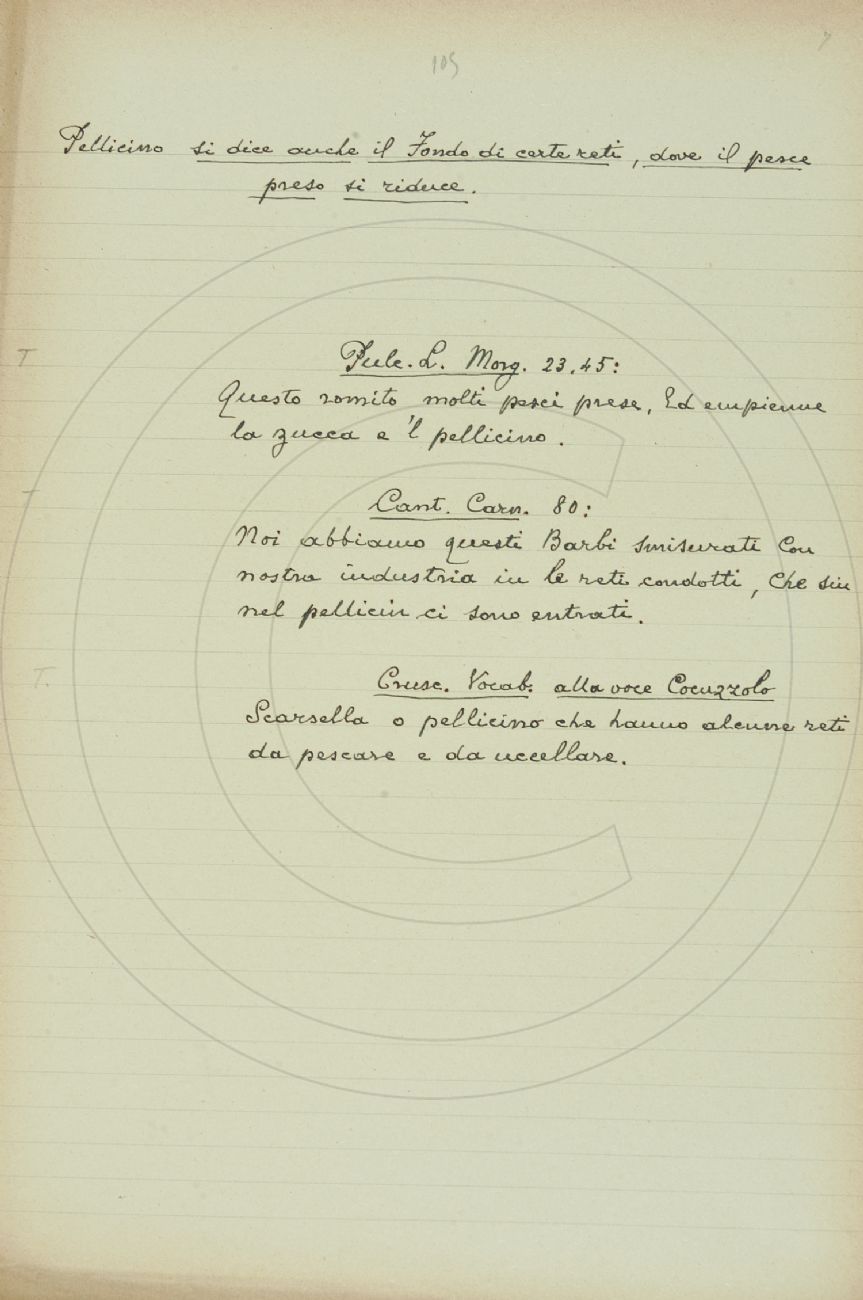 105
7
Pellicino si dice anche il Fondo di certe reti, dove il pesce
preso si riduce.
T
Pulc. L. Morg. 23.45:
Questo romito molti pesci prese, Ed empienne
la zucca e 'l pellicino.
T
Cant. Carn. 80:
Noi abbiamo questi Barbi smisurati Con
nostra industria in le reti condotti, Che sin
nel pellicin ci sono entrati.
T.
Crusc. Vocab. alla voce Cocuzzolo
Scarsella o pellicino che hanno alcune reti
da pescare e da uccellare.